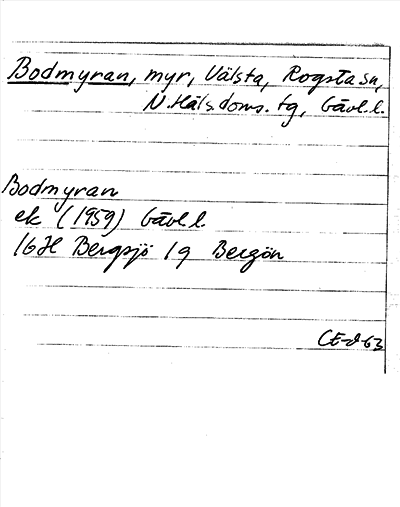 Bodmyran, myr, Välsta, Rogsta sn,
N. Häls. doms. tg, Gävl.l.
Bodmyran
ek (1959) Gävl.l.
16H Bergsjö 1g Bergön